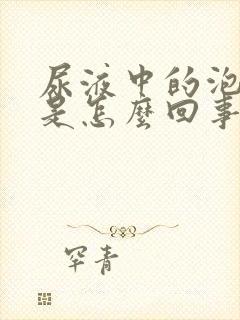 尿液中的泡
是怎麼回事
罕青